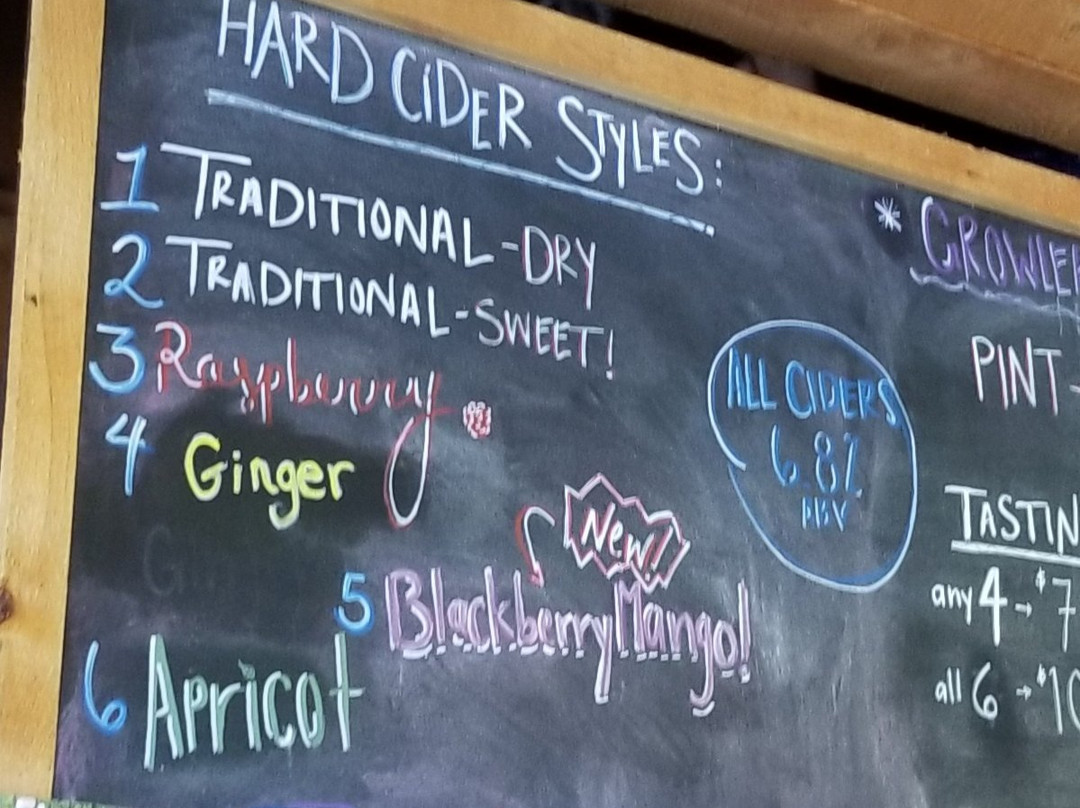 HARD CIDER STYLES:
1 TRADITIONAL-DRY
2 TRADITIONAL-SWEET!
3 Raspberry
4 Ginger
New!
5 BlackberryMango!
6 Apricot
ALL CIDERS
6.8%
ABV
* GROWLE
PINT-
TASTIN
any 4 → $7
all 6 → $10